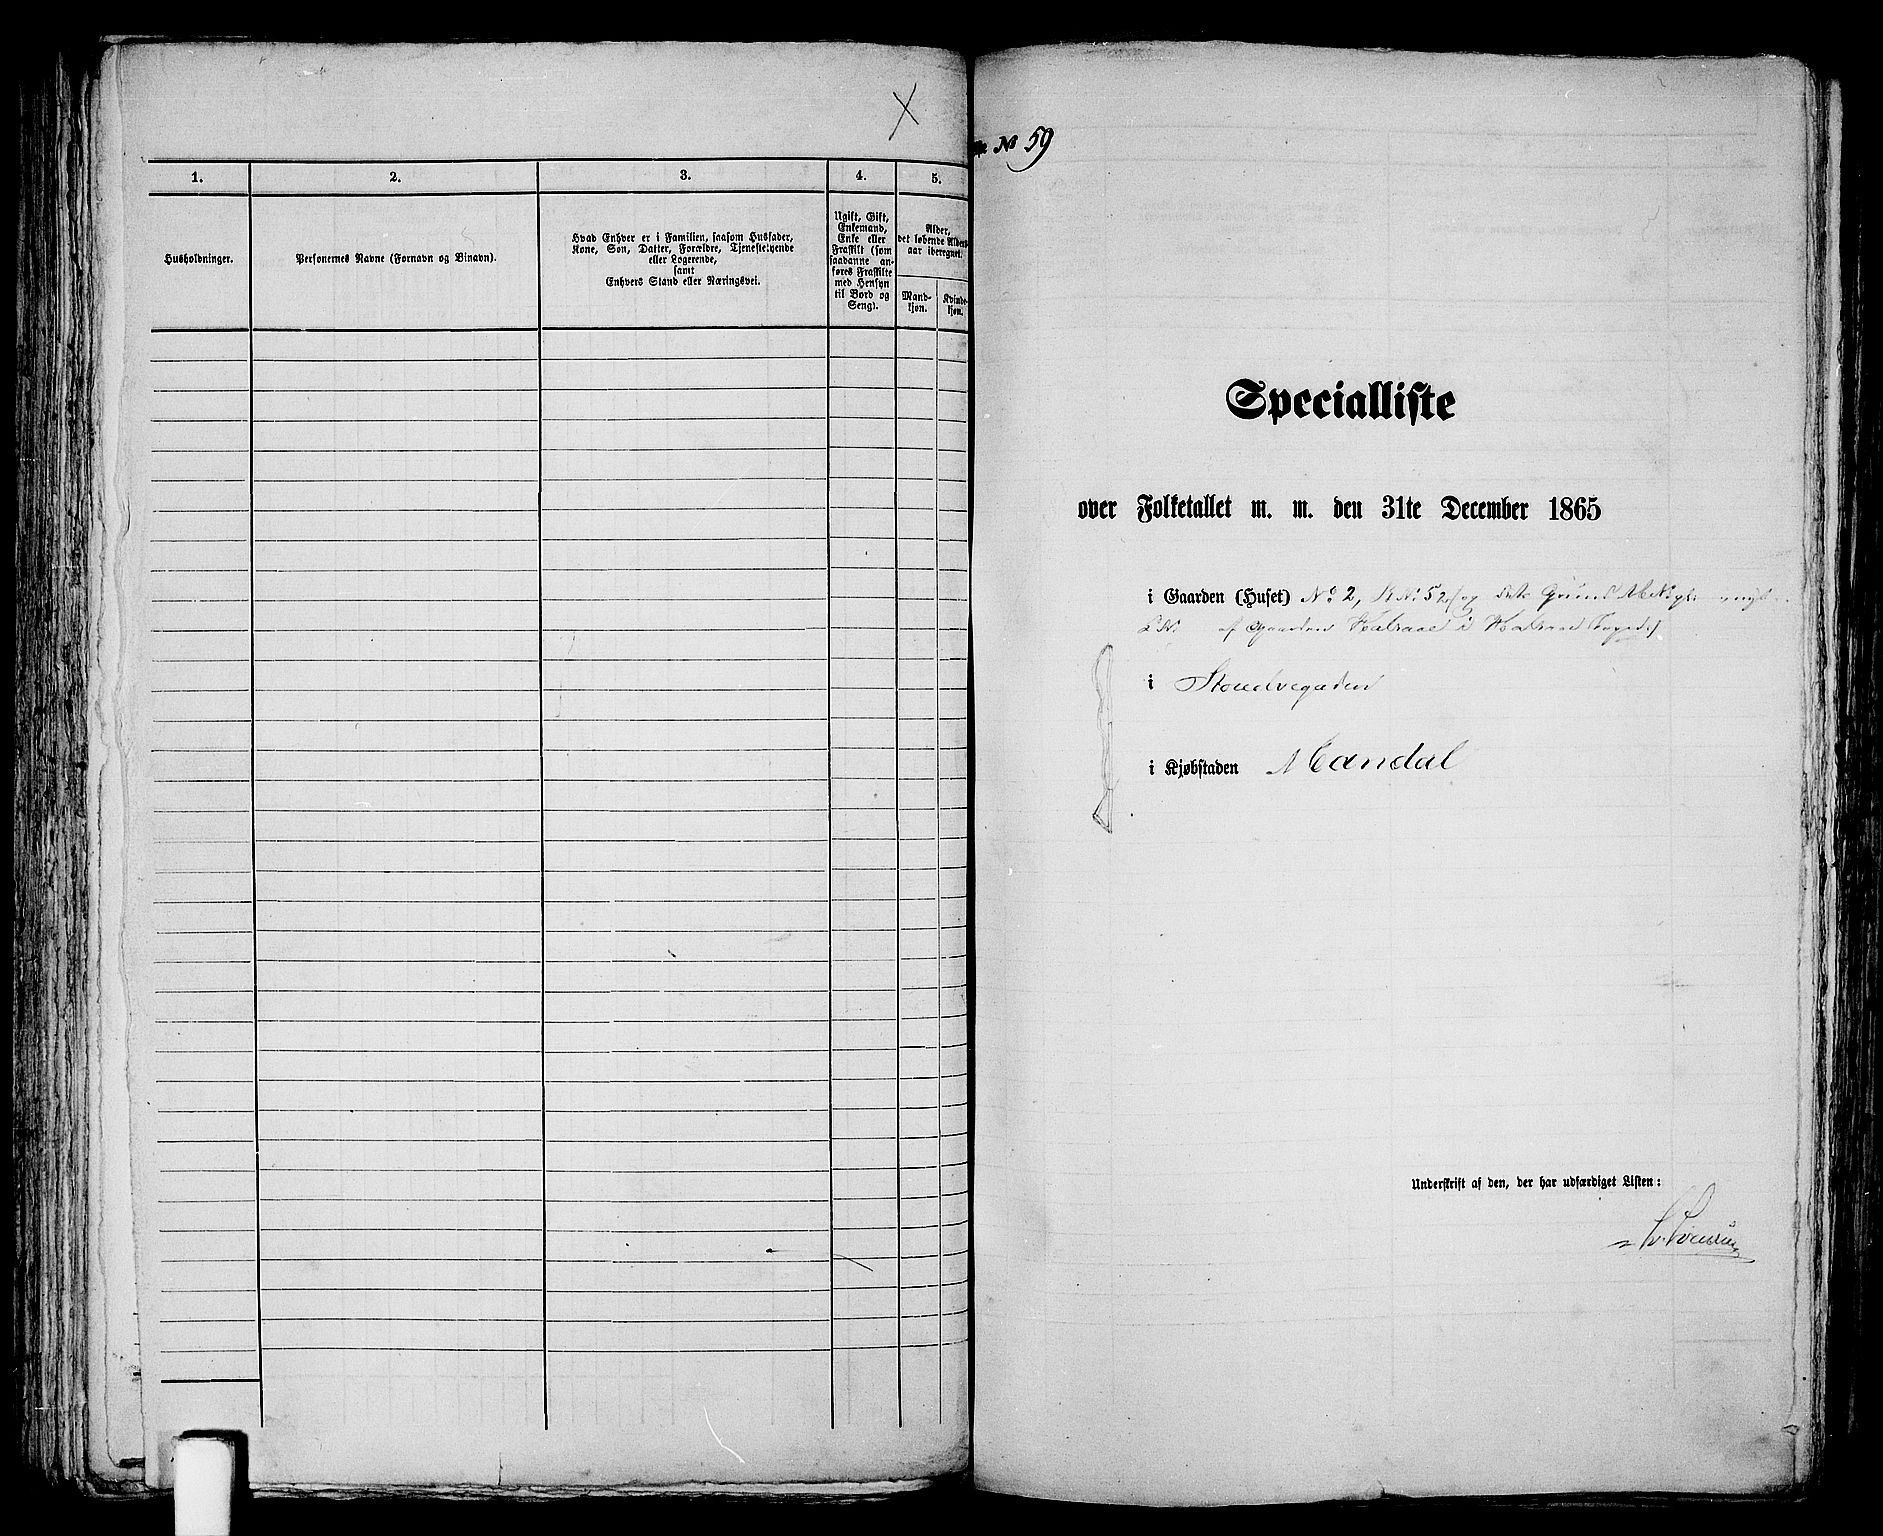 1.
2.
3.
4.
5.
Husholdninger.
Personernes Navne (Fornavn og Binavn).
Hvad Enhver er i Familien, saasom Husfader,
Kone, Søn, Datter, Forældre, Tjenestetyende
eller Logerende,
samt
Enhvers Stand eller Næringsvei.
Ugift, Gift,
Enkemand,
Enke eller
Fraskilt (som
saadanne an-
føres Fraskilte
med Hensyn
til Bord og
Seng).
Alder,
det løbende Alders-
aar iberegnet.
Mand-
kjøn.
Kvinde-
kjøn.
№ 59
Specialliste
over Folketallet m. m. den 31te December 1865
i Gaarden (Huset) No 2,
af Gaarden i
i
i Kjøbstaden Mandal
Underskrift af den, der har udfærdiget Listen: